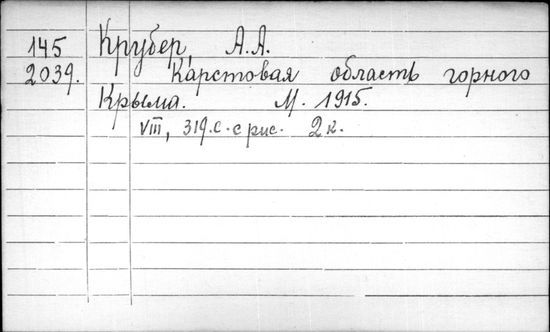 145 Крубер, А.А.
2039. Карстовая область горного
Крыма. М. 1915.
VIII, 319.с. с рис. 2к.